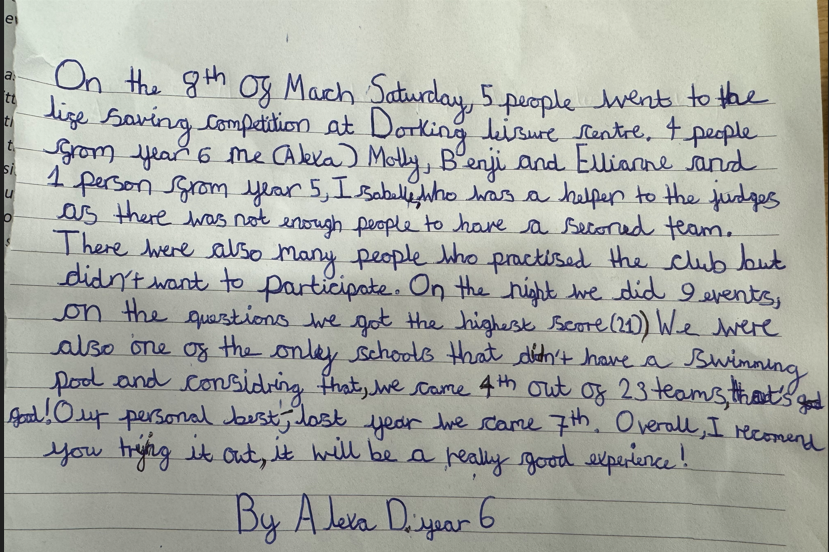 On the 8th Of March Saturday, 5 people went to the
life saving competition at Dorking leisure centre. 4 people
from year 6 me (Alexa) Molly, Benji and Ellianne and
1 person from year 5, Isabelle, who was a helper to the judges
as there was not enough people to have a seconed team.
There were also many people who practised the club but
didn't want to participate. On the night we did 9 events,
on the questions we got the highest score (21)) We were
also one of the only schools that didn't have a swimming
pool and considring that, we came 4th out of 23 teams, that's good
good! Our personal best, last year we came 7th. Overall, I recomend
you trying it out, it will be a really good experience!
By Alexa D. year 6